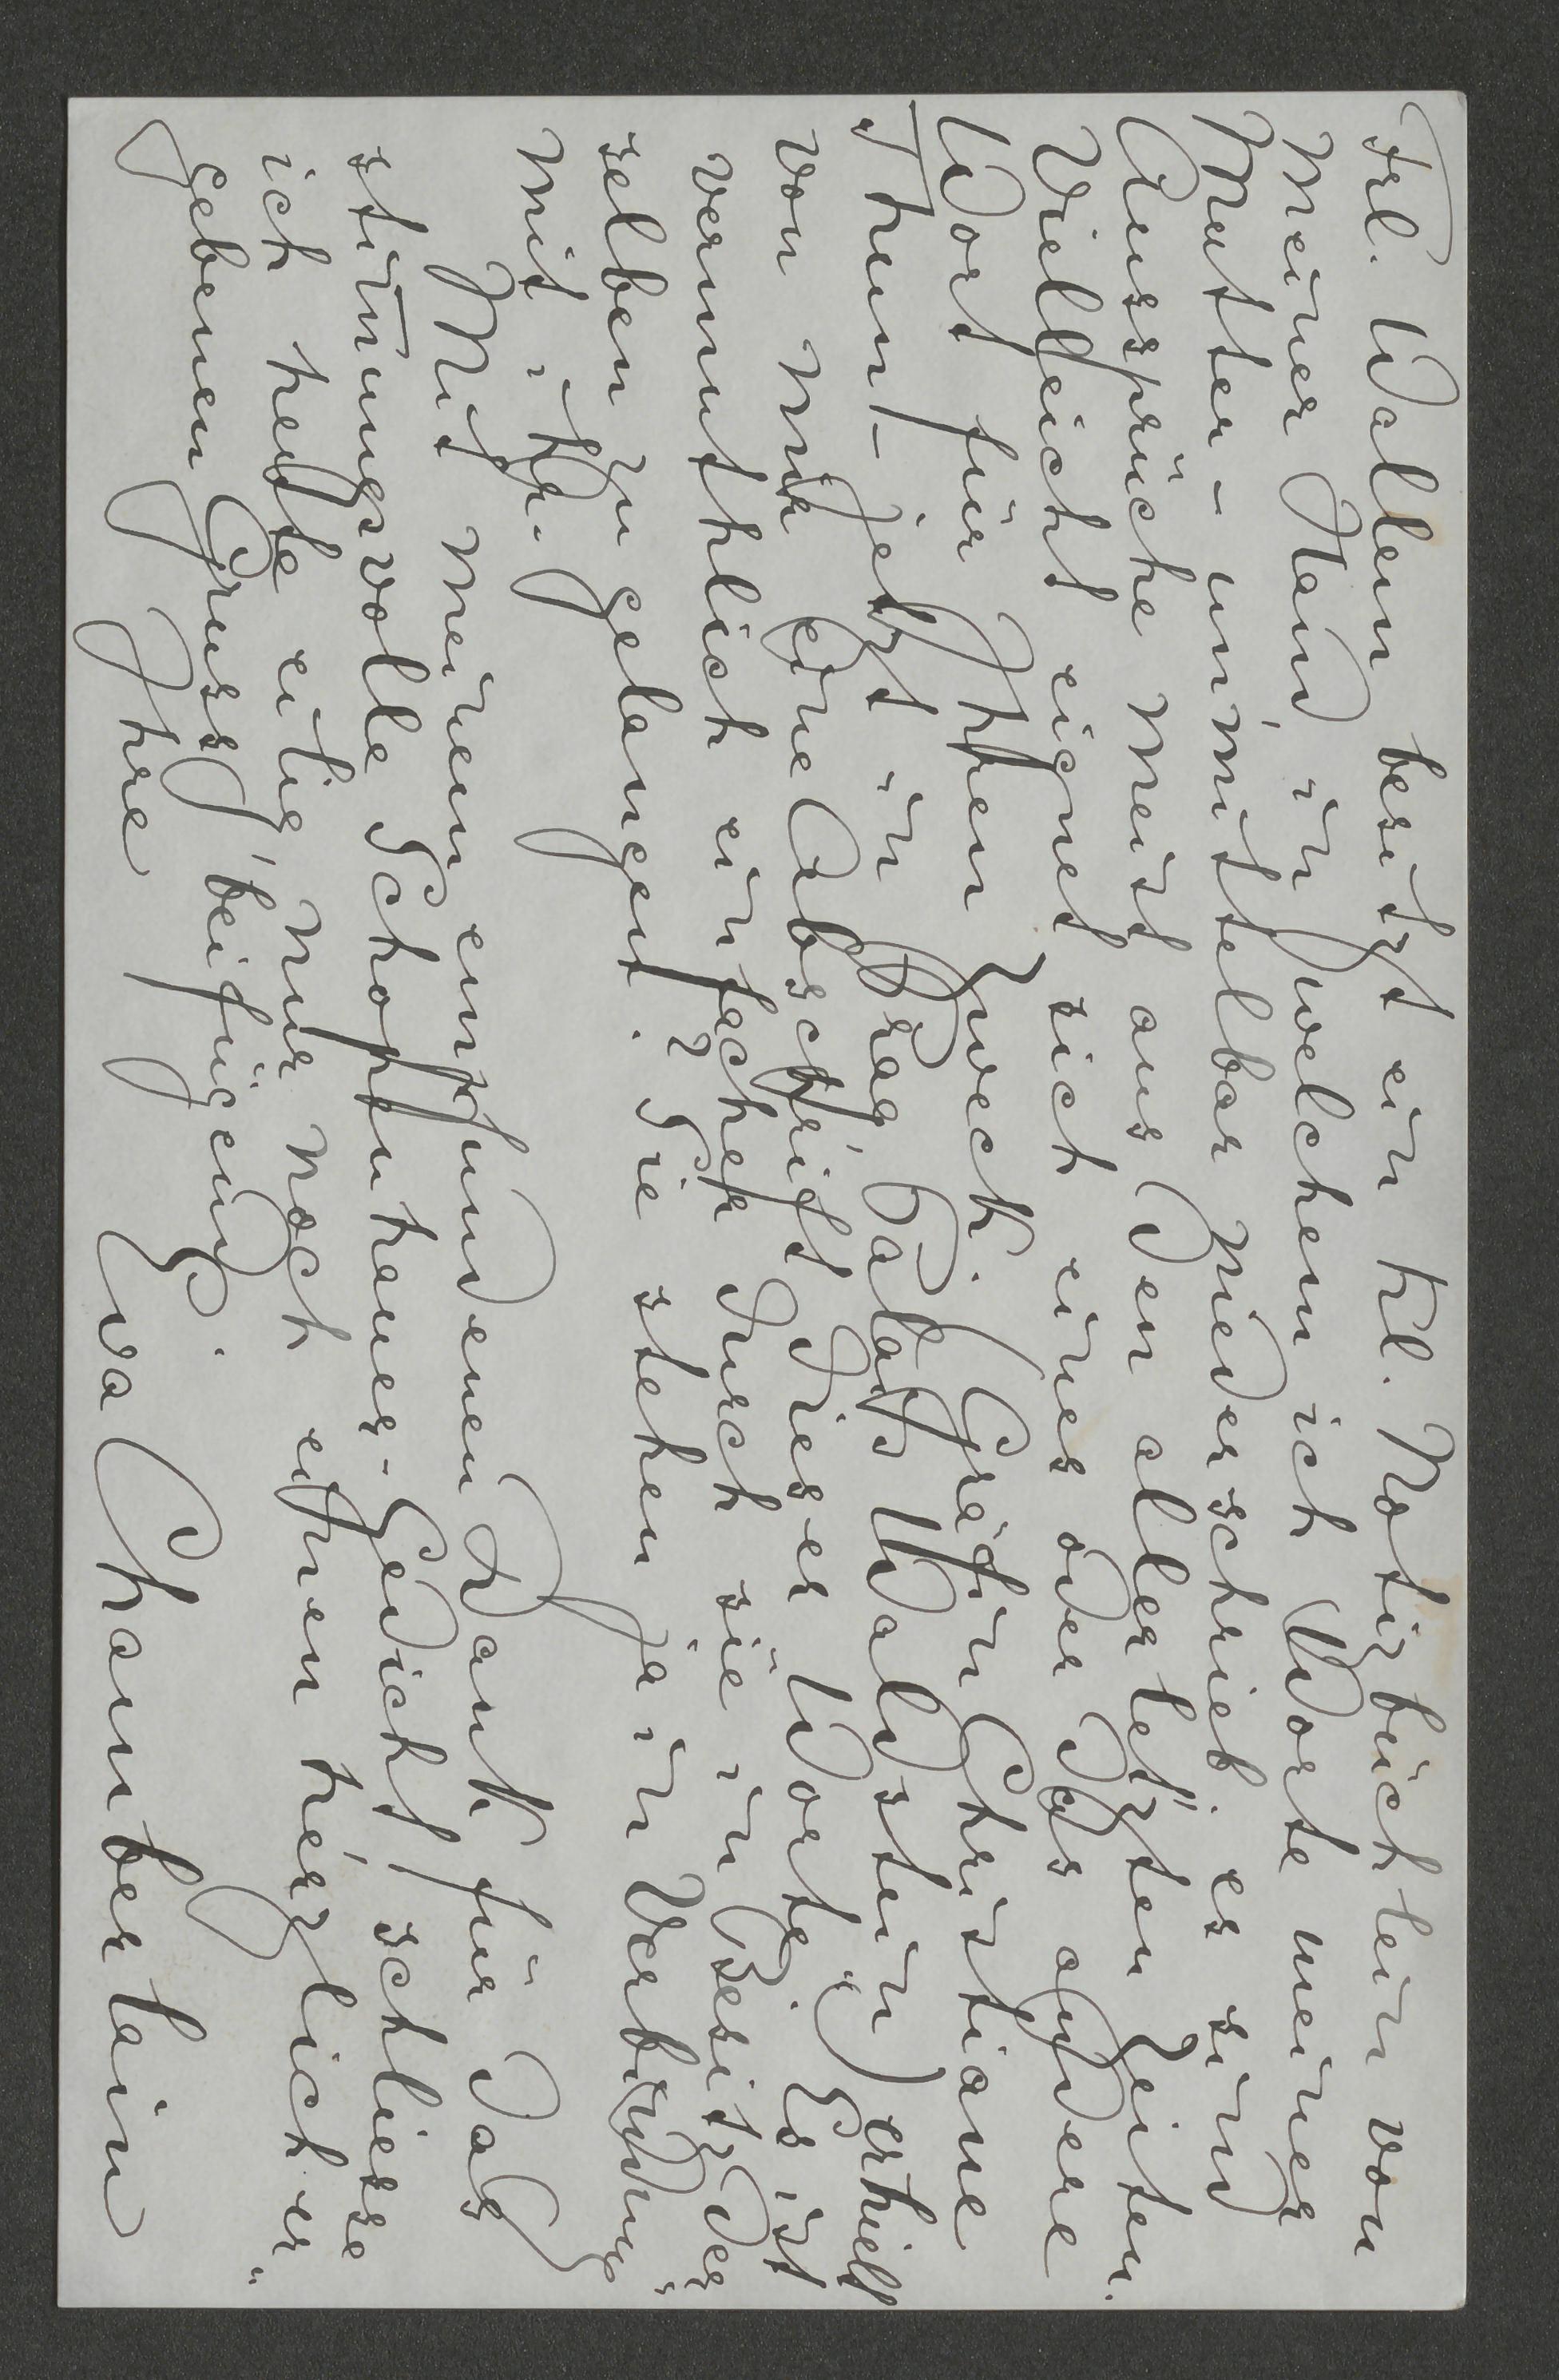 Frl. Wallem besitzt ein kl. Notizbüchlein von
meiner Hand, in welchem ich Worte meiner
Mutter - unmittelbar niederschrieb. es sind
Aussprüche meist aus den allerletzten Zeiten.
Vielleicht eignet sich eines oder das andere
Wort für Ihren Zweck. Gräfin Christiane
Thun- (jetzt in Prag, Palais Waldstein) erhielt
von mir eine Abschrift dieser Worte. Es ist
vermuthlich einfacher durch sie in Besitz der-
selben zu gelangen? Sie stehen ja in Verbindung
mit ihr.
Mit meinem empfundenen Dank für das
stimmungsvolle Schopfenhauer-Gedicht, schliesse
ich heute eilig, nur noch einen herzlich er-
gebenen Gruss beifügend.
Ihre Eva Chamberlain